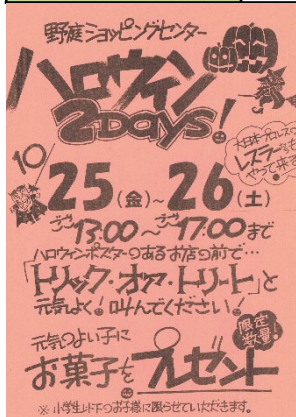 野庭ショッピングセンター
ハロウィン
2DAYS!
大日本プロレスの
レスラーも
やって来る
10/
25(金)~26(土)
13:00~17:00まで
ハロウィンポスターのあるお店の前で…
「トリック・オア・トリート」と
元気よく!叫んでください!
元気のよい子に
限定
数量!
お菓子をプレゼント
※小学生以下のお子様に限らせていただきます。